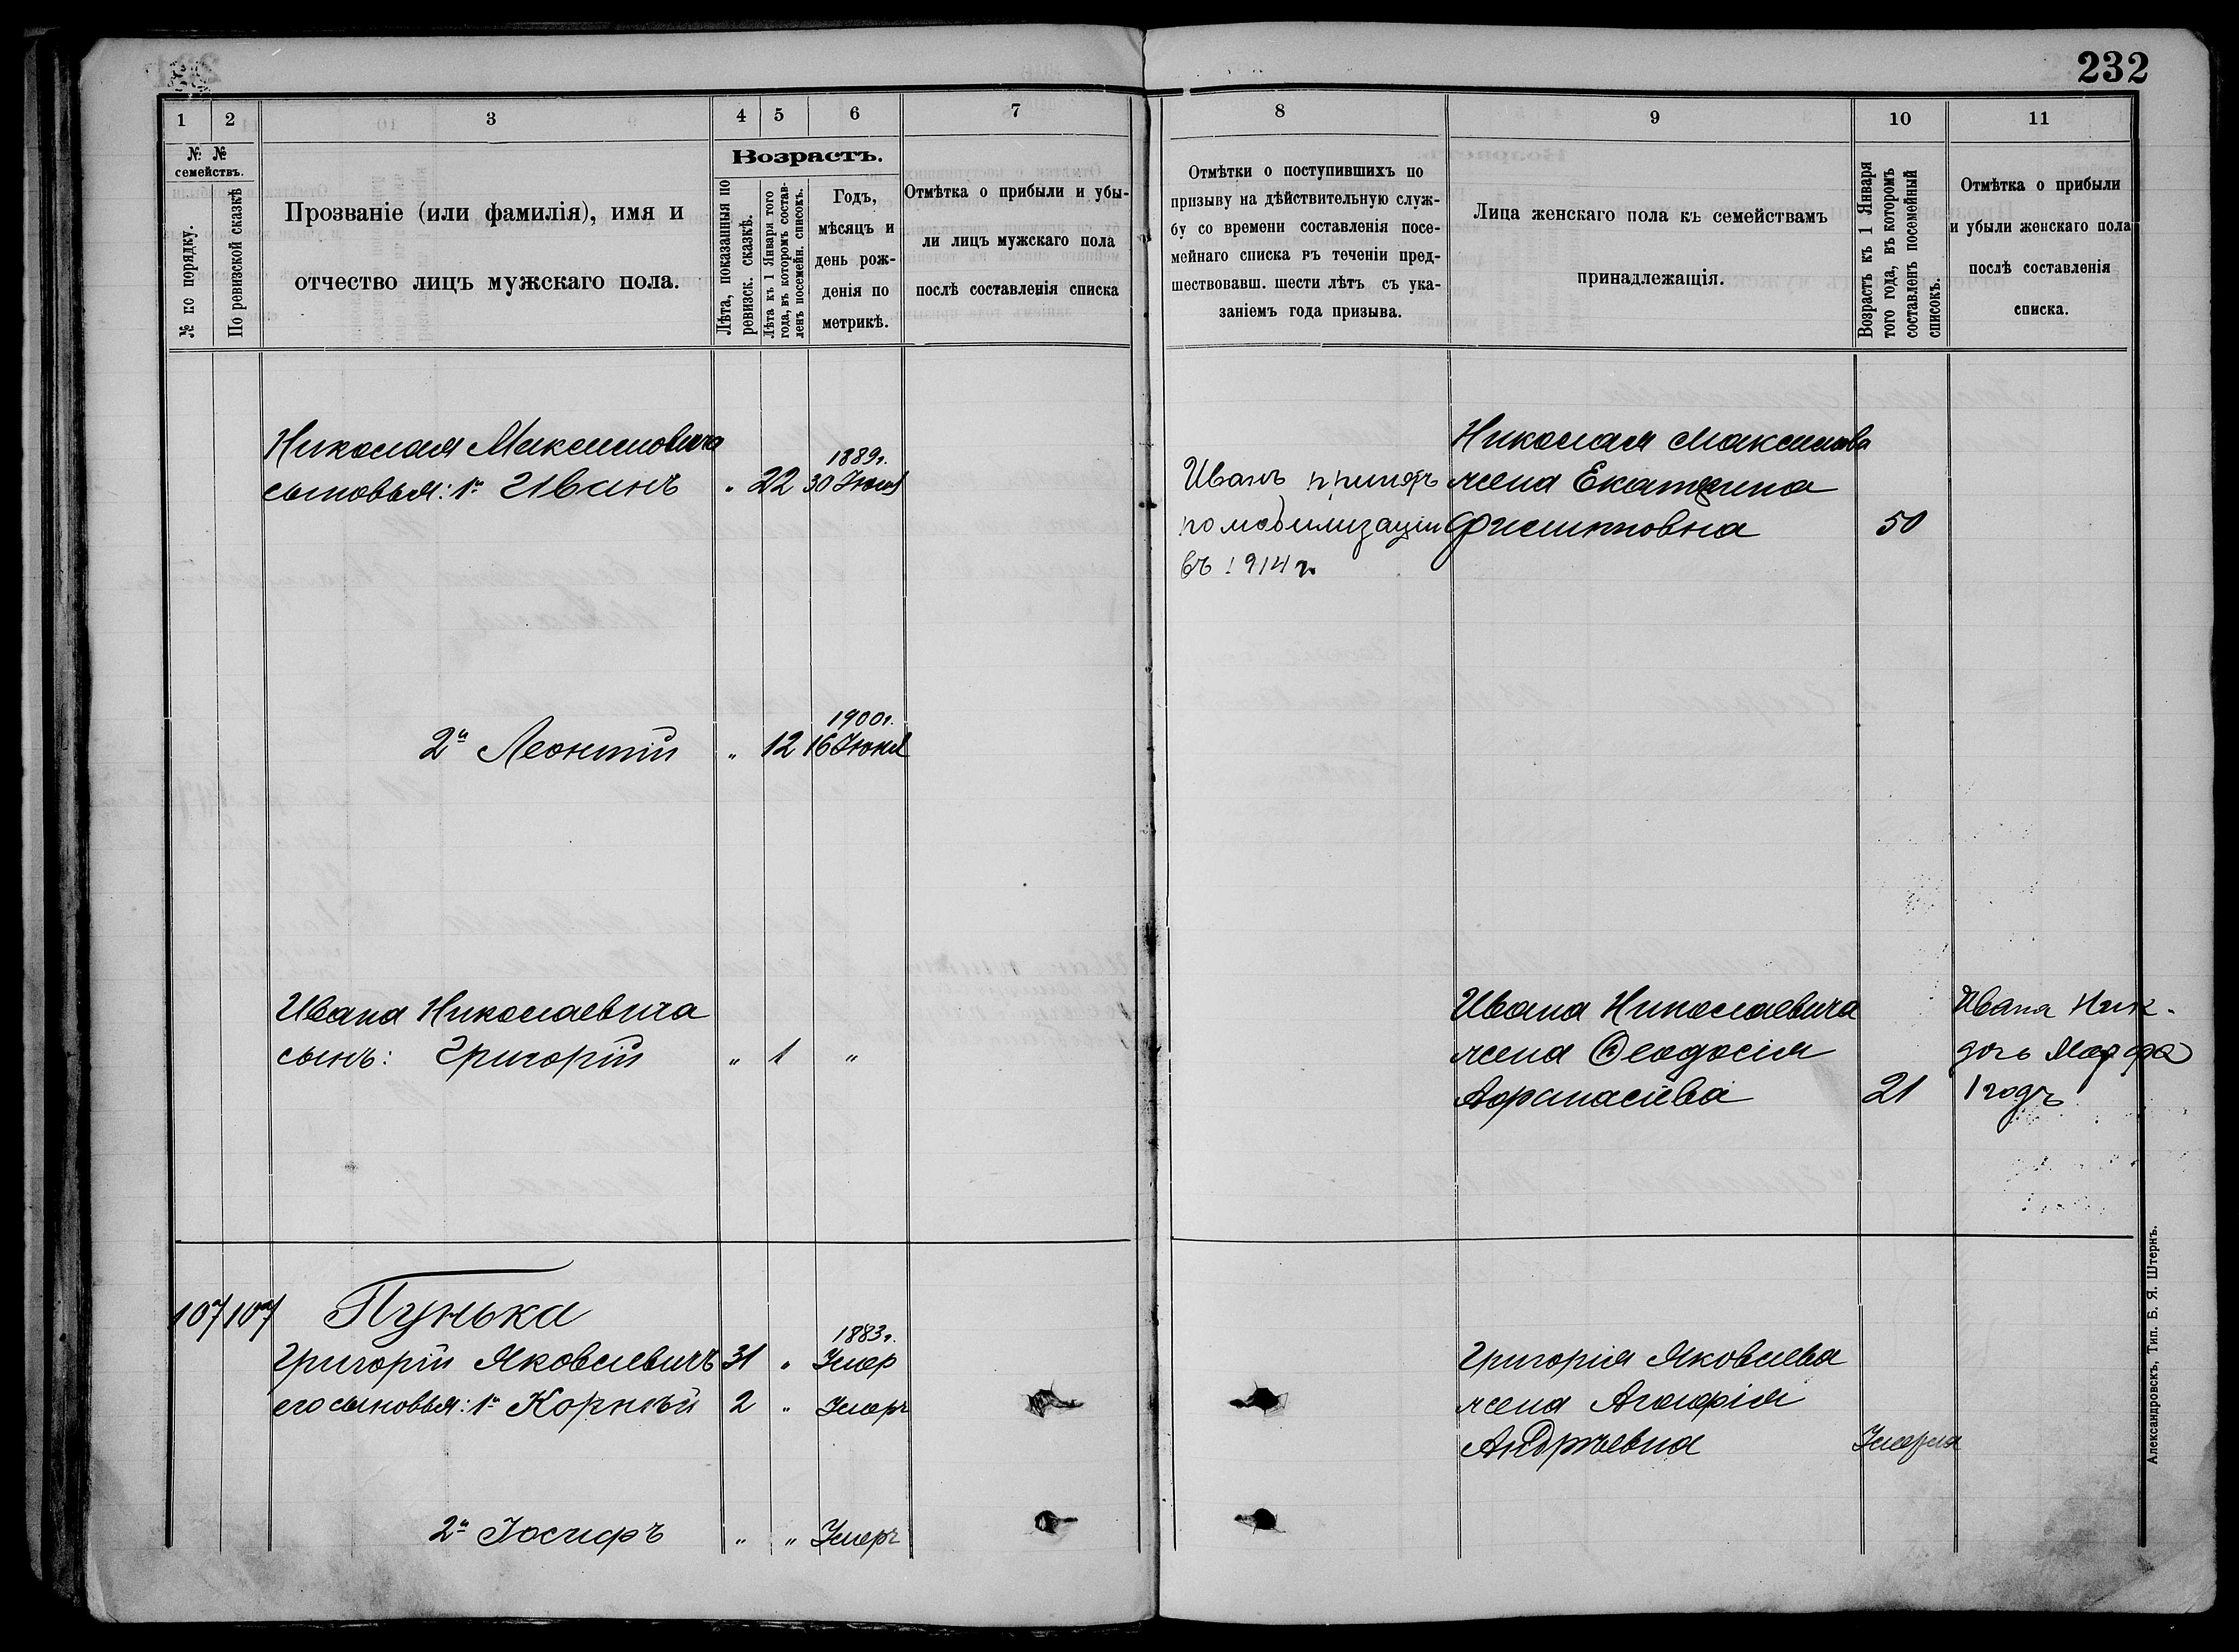 232
1 2 3 4 5 6 7
№ №
семействъ.
№ по порядку.
По ревизской сказкѣ
Прозваніе (или фамилія), имя и
отчество лицъ мужскаго пола.
Возрастъ.
Лѣта, показанныя по
ревизск. сказкѣ.
Лѣта къ 1 Января того
года, въ которомъ состав-
ленъ посемейн. списокъ.
Годъ,
мѣсяцъ и
день рож-
денія по
метрикѣ.
Отмѣтка о прибыли и убы-
ли лицъ мужскаго пола
послѣ составленія списка
Николая Максимовича
сыновья: 1й Иванъ " 22 1889г. 30 Іюня
2й Леонтій " 12 1900г. 16 Іюня
Ивана Николаевича
сынъ: Григорій " 1 "
107 107 Пунька
Григорій Яковлевичъ 31 " 1883г. Умер
его сыновья: 1й Корнѣй 2 " Умеръ
2й Іосифъ " " Умеръ
8 9 10 11
Отмѣтки о поступившихъ по
призыву на дѣйствительную служ-
бу со времени составленія посе-
мейнаго списка въ теченіи пред-
шествовавш. шести лѣтъ съ ука-
заніемъ года призыва.
Лица женскаго пола къ семействамъ
принадлежащія.
Возрастъ къ 1 Января
того года, въ которомъ
составленъ посемейный
списокъ.
Отмѣтка о прибыли
и убыли женскаго пола
послѣ составленія
списка.
Иванъ принятъ
по мобилизаціи
въ 1914 г.
Николая Максимова
жена Екатерина
Филипповна 50
Ивана Николаевича
жена Ѳеодосія
Афанасіева 21
Ивана Ник.
дочь Марфа
1 годъ
Григорія Яковлева
жена Агафія
Андрѣевна Умерла
Александровскъ, Тип. Б. Я. Штернъ.